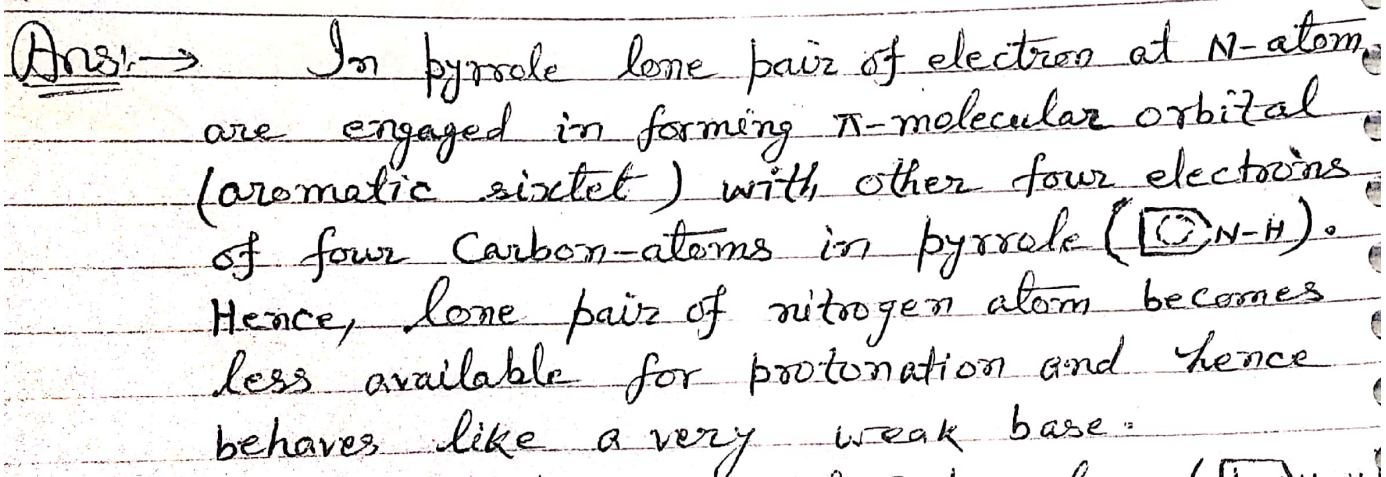 Ans:→ In pyrrole lone pair of electron at N-atom
are engaged in forming π-molecular orbital
(aromatic sixtet) with other four electroins
of four Carbon-atoms in pyrrole (N-H).
Hence, lone pair of nitrogen atom becomes
less available for protonation and hence
behaves like a very weak base.